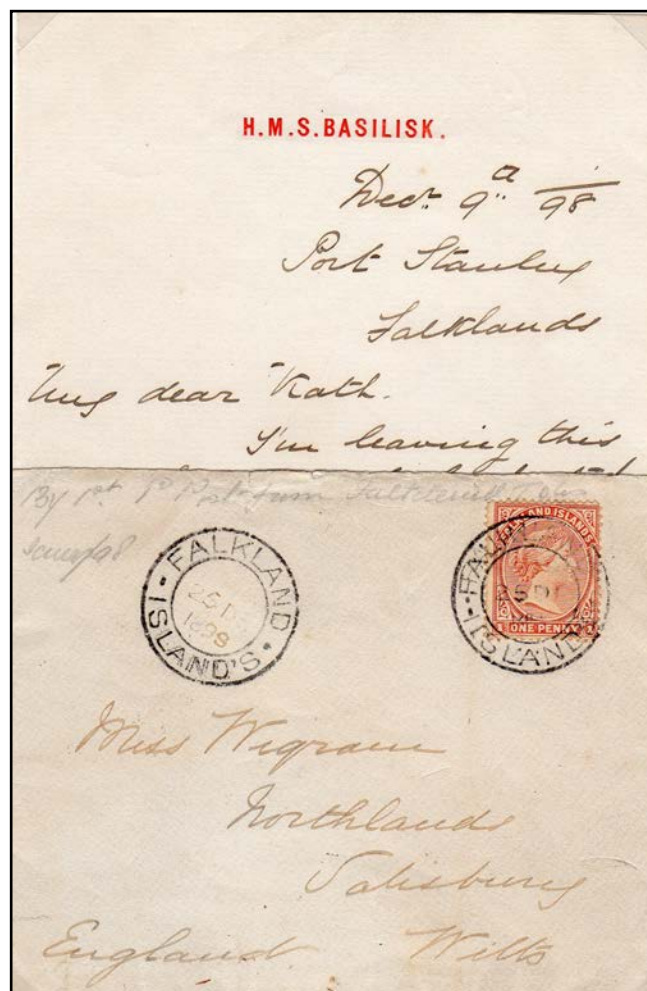 H.M.S. BASILISK.
Decr 9th 98
Port Stanley
Falklands
My dear Kath.
I'm leaving this
By 1st 1d Post from Falkland
FALKLAND ISLAND'S
25 D
1898
FALKLAND ISLANDS
ONE PENNY
FALKLAND ISLAND'S
Miss Wigram
Northlands
Salisbury
England Wilts